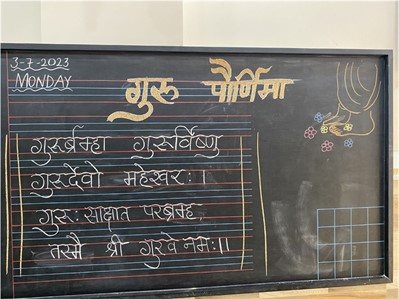 3-7-2023
MONDAY
गुरु पौर्णिमा
गुरुर्ब्रम्हा गुरुर्विष्णु
गुरुदेवो महेश्वरः।
गुरुः साक्षात परब्रम्ह
तस्मै श्री गुरवे नमः॥